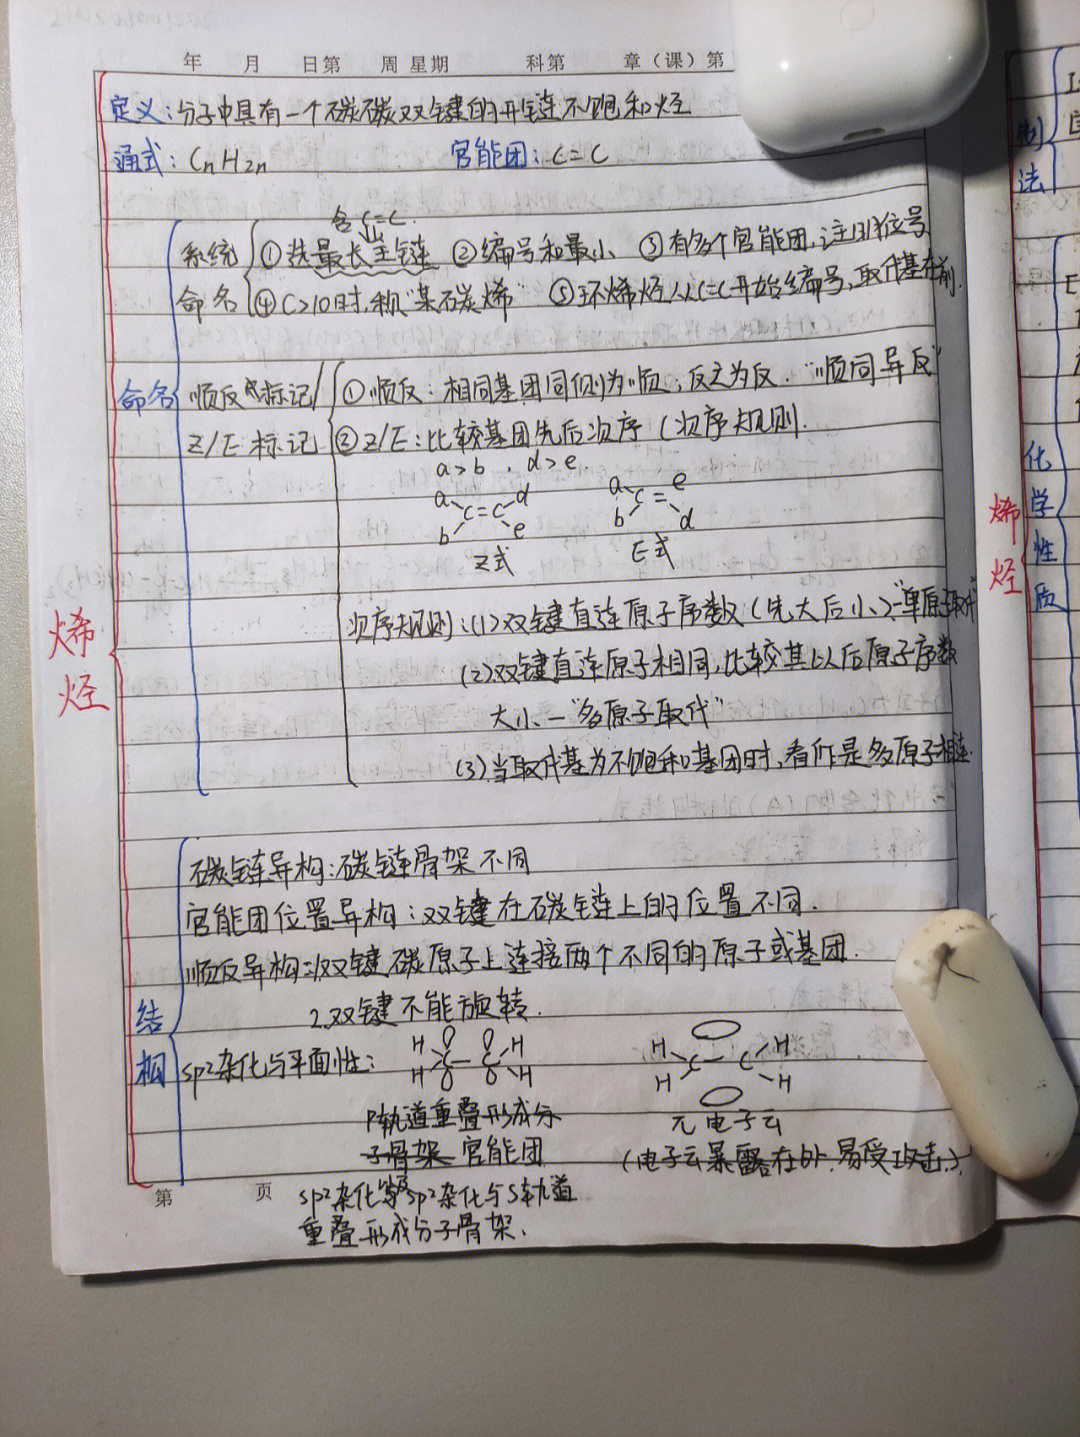 年 月 日第 周 星期 科第 章（课）第
定义：分子中具有一个碳碳双键的开链不饱和烃
通式：CnH2n 官能团：C=C
含C=C
系统 ①选最长主链 ②编号和最小 ③有多个官能团，注明位号
命名 ④C>10时，称“某碳烯” ⑤环烯烃从C=C开始编号，取代基在前
命名 顺反 标记 ①顺反：相同基团同侧为顺，反之为反．“顺同异反”
Z/E 标记 ②Z/E：比较基团先后次序（次序规则．
a>b，d>e
a d a e
C=C C=
b e b d
Z式 E式
次序规则：（1）双键直连原子序数（先大后小）—“单原子取代”
（2）双键直连原子相同，比较其以后原子序数
大小—“多原子取代”
（3）当取代基为不饱和基团时，看作是多原子相连．
烯
烃
碳链异构：碳链骨架不同
官能团位置异构：双键在碳链上的位置不同．
顺反异构：1.双键碳原子上连接两个不同的原子或基团．
2.双键不能旋转．
结
构 sp2杂化与平面性：
H H H H
C—C C—C
H H H H
P轨道重叠形成分 π电子云
子骨架 官能团 （电子云暴露在外，易受攻击．）
第 页
sp2杂化 sp2杂化与S轨道
重叠形成分子骨架．
制
法
化
学
性
质
烯
烃